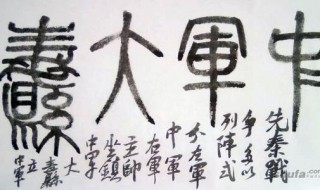 中軍大纛
先秦戰
爭多以
列陣式
分左軍
中軍
右軍
主帥
坐鎮
中軍
大纛
立
中軍